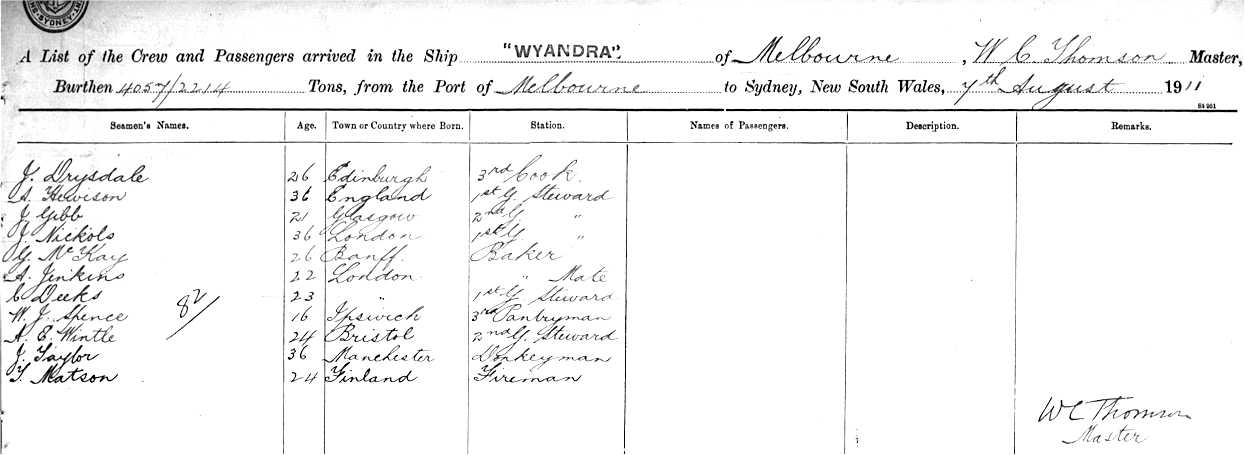 SYDNEY
A List of the Crew and Passengers arrived in the Ship "WYANDRA". of Melbourne, W C Thomson Master,
Burthen 4057/2214 Tons, from the Port of Melbourne to Sydney, New South Wales, 7th August 1911
St 951
Seamen's Names. Age. Town or Country where Born. Station. Names of Passengers. Description. Remarks.
J. Drysdale 26 Edinburgh 3rd Cook.
A. Hewison 36 England 1st G. Steward
J Gibb 21 Glasgow 2nd G. "
J. Nickols 36 London 1st G "
G. McKay 26 Banff. Baker
A. Jenkins 22 London " Mate
C Deeks 23 " 1st G Steward
W. J. Spence 16 Ipswich 3rd Pantryman
A. E. Wintle 24 Bristol 2nd G. Steward
J. Taylor 36 Manchester Donkeyman
T. Matson 24 Finland Fireman
82/
W C Thomson
Master